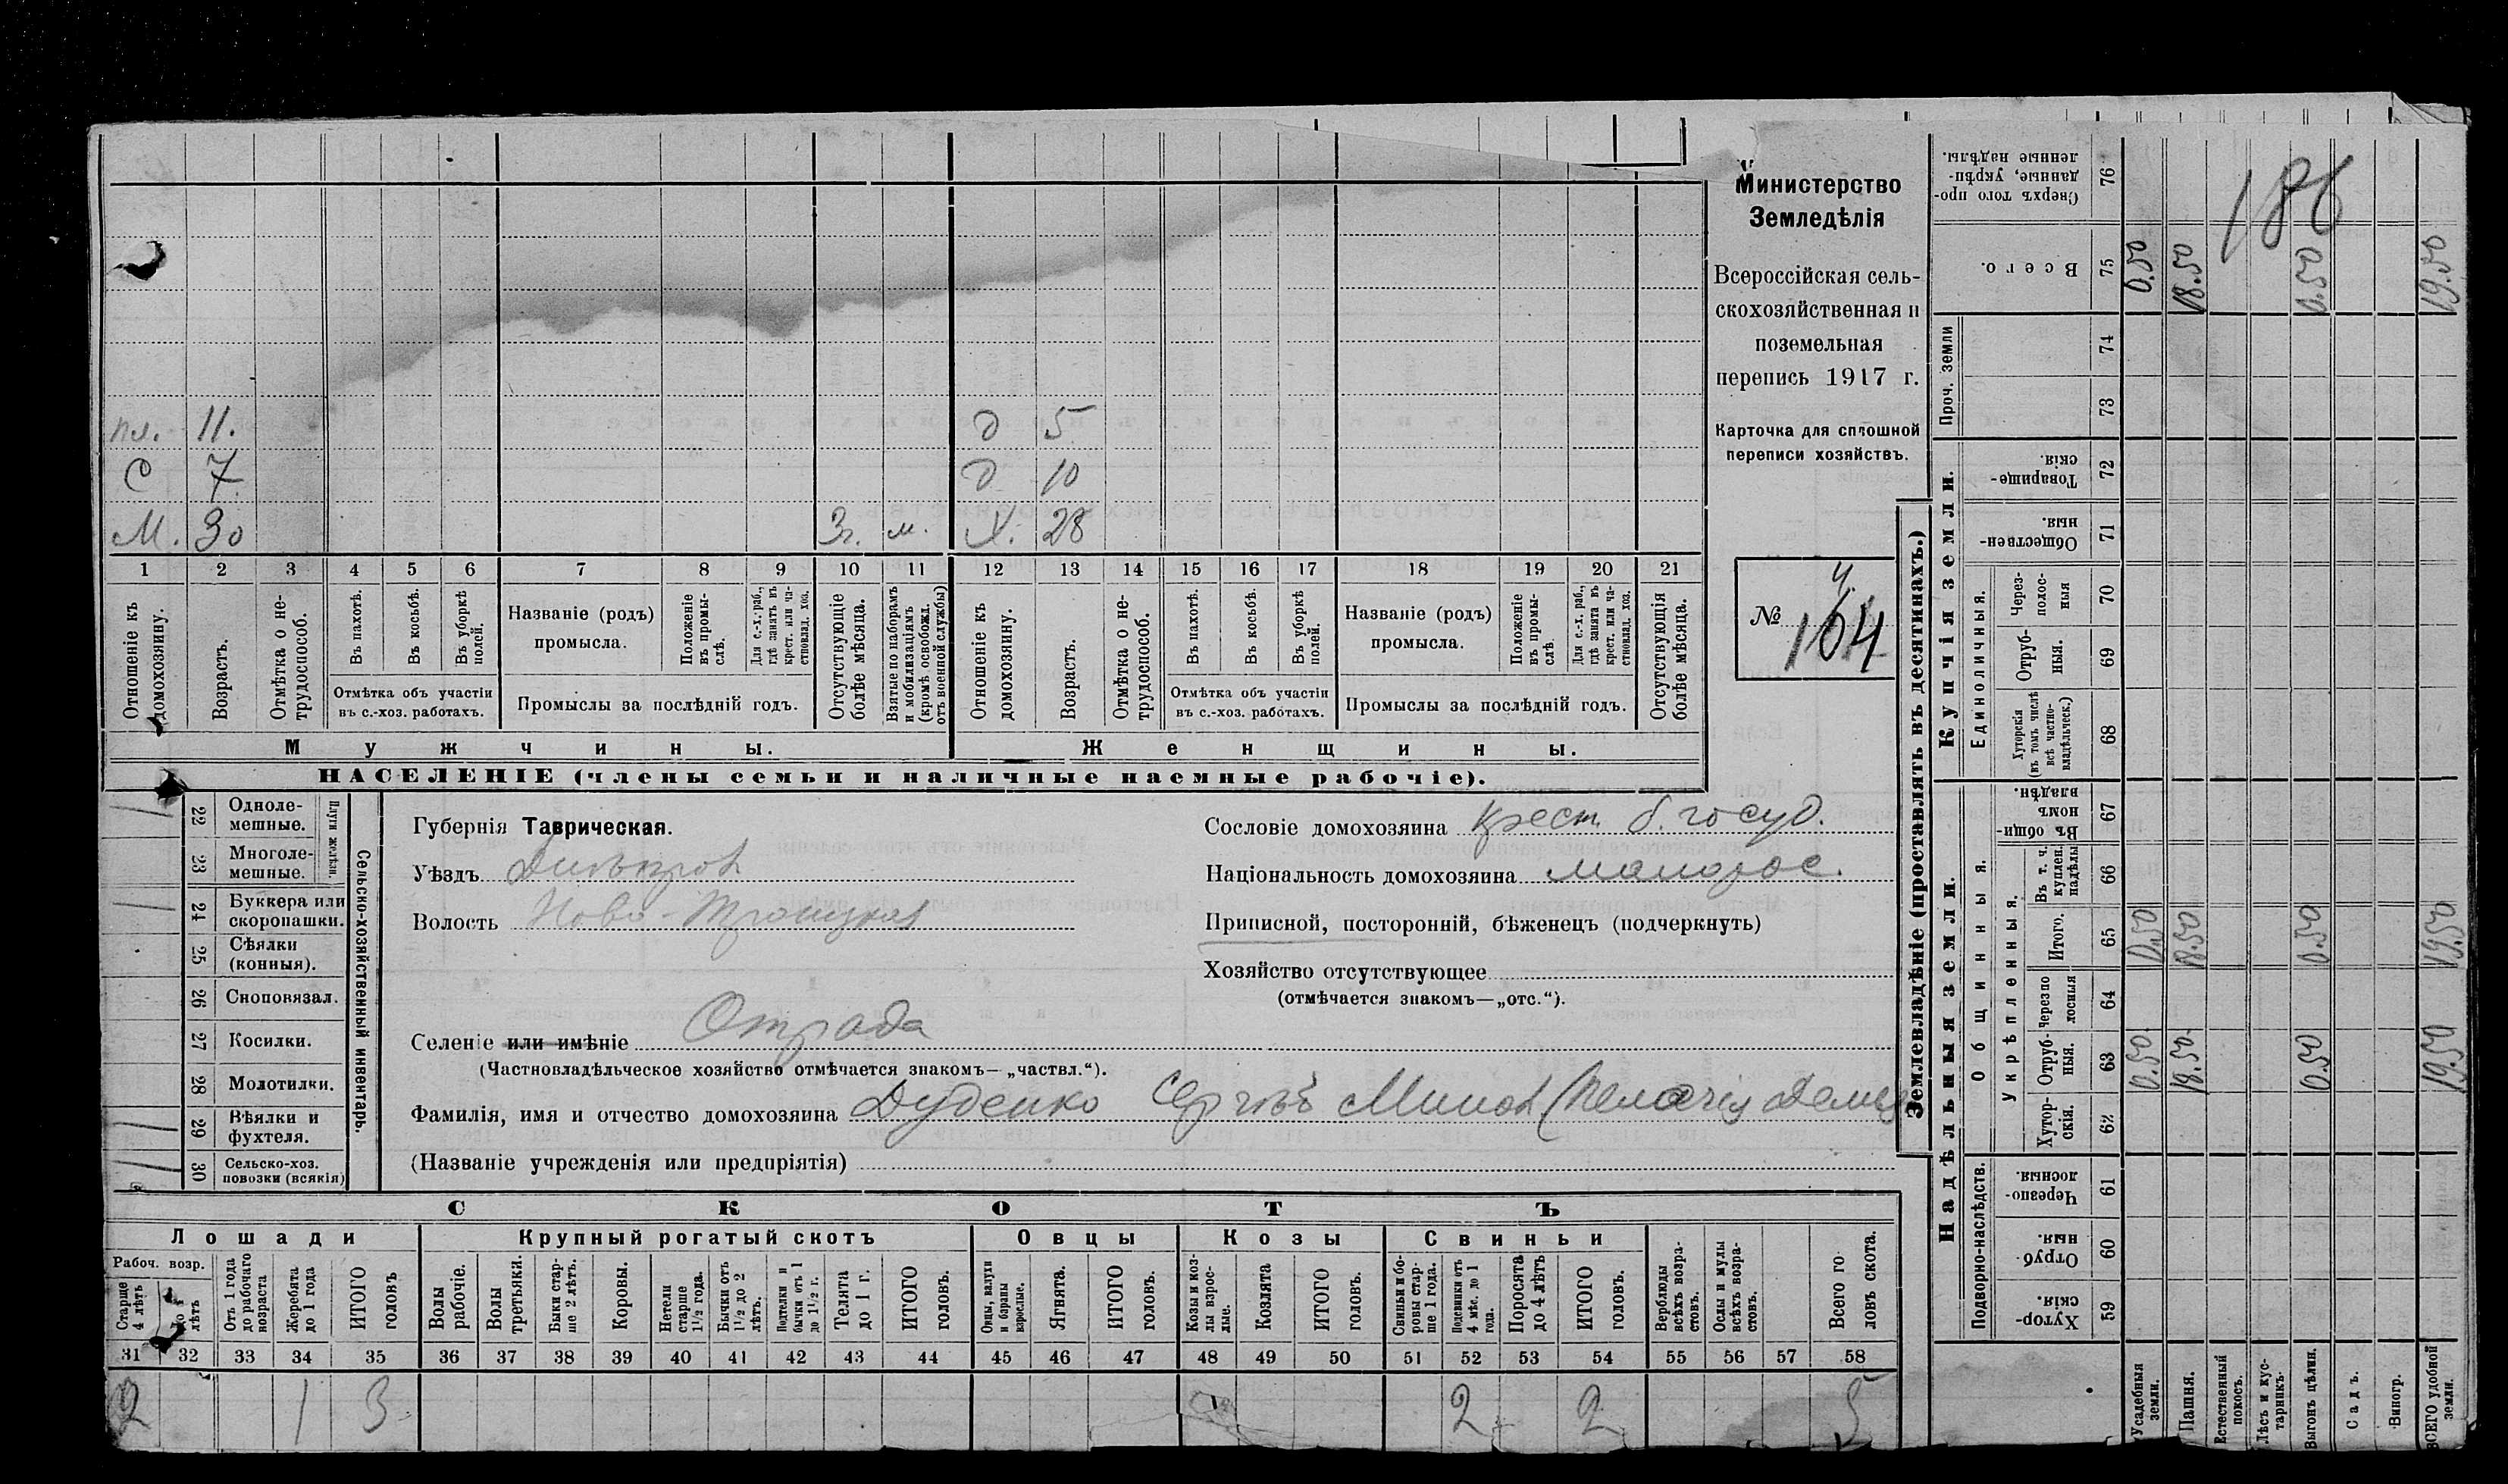 Министерство
Земледѣлія
Всероссійская сель-
скохозяйственная и
поземельная
перепись 1917 г.
Карточка для сплошной
переписи хозяйствъ.
№ 164
186
пл. 11. д 5
С 7 д 10
М. 30 3г. м. Х. 28
1 2 3 4 5 6 7 8 9 10 11 12 13 14 15 16 17 18 19 20 21
Отношеніе къ домохозяину.
Возрастъ.
Отмѣтка о не-трудоспособ.
Въ пахотѣ.
Въ косьбѣ.
Въ уборкѣ полей.
Отмѣтка объ участіи
въ с.-хоз. работахъ.
Названіе (родъ)
промысла.
Положеніе въ промы-слѣ.
Для с.-х. раб., гдѣ занятъ въ крест. или ча-стновлад. хоз.
Промыслы за послѣдній годъ.
Отсутствующіе болѣе мѣсяца.
Взятые по наборамъ и мобилизаціямъ (кромѣ освобожд. отъ военной службы)
Отношеніе къ домохозяину.
Возрастъ.
Отмѣтка о не-трудоспособ.
Въ пахотѣ.
Въ косьбѣ.
Въ уборкѣ полей.
Отмѣтка объ участіи
въ с.-хоз. работахъ.
Названіе (родъ)
промысла.
Положеніе въ промы-слѣ
Для с.-х. раб., гдѣ занята въ крест. или ча-стновлад. хоз.
Промыслы за послѣдній годъ.
Отсутствующія болѣе мѣсяца.
Мужчины. Женщины.
НАСЕЛЕНІЕ (члены семьи и наличные наемные рабочіе).
Сельско-хозяйственный инвентарь.
Плуги желѣзн.
22 Одноле-
мешные.
23 Многоле-
мешные.
24 Буккера или
скоропашки.
25 Сѣялки
(конныя).
26 Сноповязал.
27 Косилки.
28 Молотилки.
29 Вѣялки и
фухтеля.
30 Сельско-хоз.
повозки (всякія)
Губернія Таврическая.
Уѣздъ Днѣпров
Волость Ново-Троицкая
Сословіе домохозяина крест. б. госуд.
Національность домохозяина малорос.
Приписной, посторонній, бѣженецъ (подчеркнуть)
Хозяйство отсутствующее
(отмѣчается знакомъ—„отс.“).
Селеніе или имѣніе Отрада
(Частновладѣльческое хозяйство отмѣчается знакомъ— „частвл.“).
Фамилія, имя и отчество домохозяина Дуденко Сергѣй Минов (Пелагія
(Названіе учрежденія или предпріятія)
СКОТЪ
Лошади Крупный рогатый скотъ Овцы Козы Свиньи
Рабоч. возр.
Старше 4 лѣтъ
До 4 лѣтъ
Отъ 1 года до рабочаго возраста
Жеребята до 1 года
ИТОГО головъ
Волы рабочіе.
Волы третьяки.
Быки стар-ше 2 лѣтъ.
Коровы.
Нетели старше 1½ года.
Бычки отъ 1½ до 2 лѣтъ.
Подтелки и бычки отъ 1 до 1½ г.
Телята до 1 г.
ИТОГО головъ.
Овцы, валухи и бараны взрослые.
Ягнята.
ИТОГО головъ.
Козы и коз-лы взрос-лые.
Козлята
ИТОГО головъ.
Свиньи и бо-ровы стар-ше 1 года.
Подсвинки отъ 4 мѣс. до 1 года.
Поросята до 4 лѣтъ
ИТОГО головъ.
Верблюды всѣхъ возра-стовъ.
Ослы и мулы всѣхъ возра-стовъ.
Всего го-ловъ скота.
31 32 33 34 35 36 37 38 39 40 41 42 43 44 45 46 47 48 49 50 51 52 53 54 55 56 57 58
2 1 3 2 2 5
Землевладѣніе (проставлять въ десятинахъ.)
Надѣльныя земли. Купчія земли.
Проч. земли
Подворно-наслѣдств.
Общинныя.
Укрѣпленныя.
Единоличныя.
Сверхъ того про-данные, укрѣп-ленные надѣлы. 76
Всего. 75 0.50 18.50 0.50 19.50
74
73
Товарище-скія. 72
Обществен-ныя. 71
Через-полос-ныя 70
Отруб-ныя. 69
Хуторскія (въ томъ числѣ всѣ частно-владѣльческ.) 68
Въ общин-номъ владѣн. 67
Въ т. ч. куплен. надѣлы 66
Итого. 65 0.50 18.50 0.50 19.50
Черезпо-лосныя 64
Отруб-ныя. 63 0.50 18.50 0.50 19.50
Хутор-скія. 62
Черезпо-лосныя. 61
Отруб-ныя. 60
Хутор-скія. 59
Усадебныя земли.
Пашня.
Естественный покосъ.
Лѣсъ и кус-тарникъ.
Выгонъ цѣлин.
Садъ.
Виногр.
ВСЕГО удобной земли.